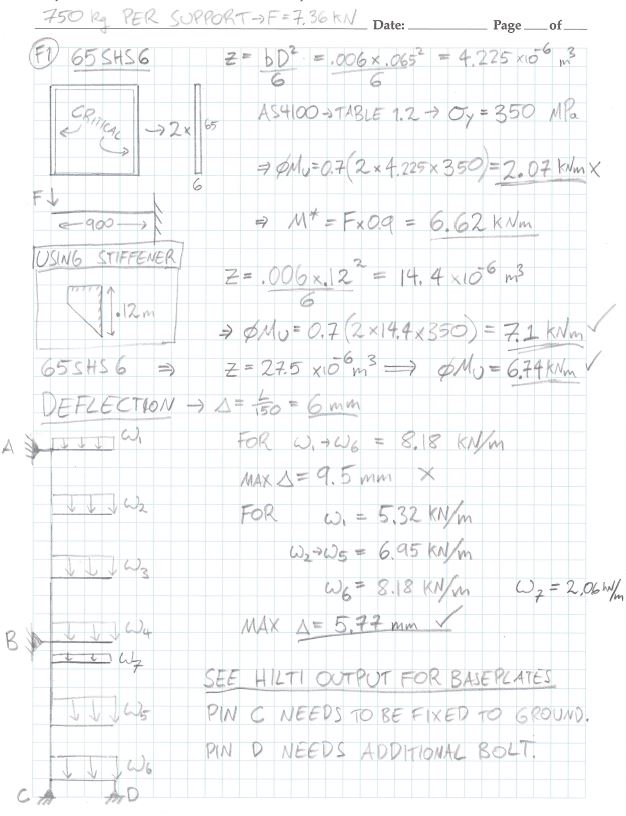 750 kg PER SUPPORT → F = 7.36 KN
Date: Page of
F1 65SHS6
Z = bD²/6 = .006 x .065²/6 = 4.225 x10⁻⁶ m³
CRITICAL → 2x 65
6
AS4100 → TABLE 1.2 → σy = 350 MPa
⇒ φMu = 0.7(2 x 4.225 x 350) = 2.07 KNm X
F
900
⇒ M* = F x 0.9 = 6.62 KNm
USING STIFFENER
.12m
Z = .006 x .12²/6 = 14.4 x10⁻⁶ m³
⇒ φMu = 0.7(2 x 14.4 x 350) = 7.1 KNm ✓
65SHS6 ⇒ Z = 27.5 x10⁻⁶ m³ ⟹ φMu = 6.74 KNm ✓
DEFLECTION → Δ = L/150 = 6 mm
A ω1
FOR ω1 → ω6 = 8.18 KN/m
MAX Δ = 9.5 mm X
ω2
FOR ω1 = 5.32 KN/m
ω2 → ω5 = 6.95 KN/m
ω3
ω6 = 8.18 KN/m ω7 = 2.06 KN/m
B ω4
MAX Δ = 5.77 mm ✓
ω7
SEE HILTI OUTPUT FOR BASEPLATES
ω5
PIN C NEEDS TO BE FIXED TO GROUND.
PIN D NEEDS ADDITIONAL BOLT.
ω6
C D